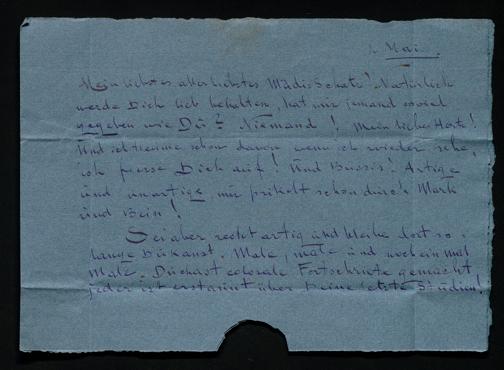 1. Mai.
Mein liebstes allerliebstes Mädis Schatz! Natürlich
werde Dich lieb behalten, hat mir jemand soviel
gegeben wie Du? Niemand! Mein liebes Herte!
Und ich träume schon davon wenn ich wieder sehe,
ich fresse Dich auf! Und Bussis! Artige
und unartige, mir prikelt schon durch Mark
und Bein!
Sei aber recht artig und bleibe dort so
lange Du kanst. Male, male und noch ein mal
Male. Du hast colosale Fortschritte gemacht
jeder ist erstaunt über Deine letzte Studien!